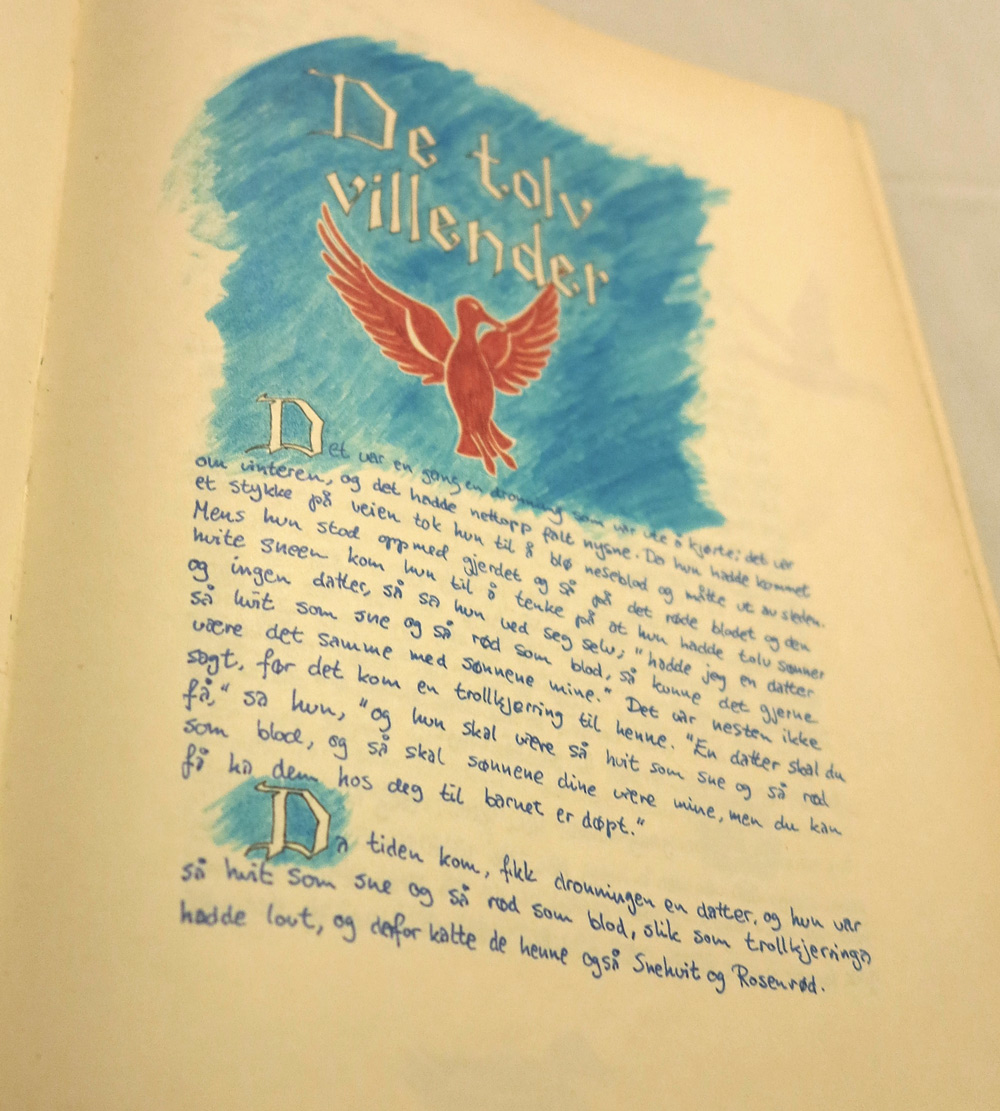 De tolv
villender
Det var en gang en dronning som var ute å kjørte; det var
om vinteren, og det hadde nettopp falt nysne. Da hun hadde kommet
et stykke på veien tok hun til å blø neseblod og måtte ut av sleden.
Mens hun stod oppmed gjerdet og så på det røde blodet og den
hvite sneen kom hun til å tenke på at hun hadde tolv sønner
og ingen datter, så sa hun ved seg selv; "hadde jeg en datter
så hvit som sne og så rød som blod, så kunne det gjerne
være det samme med sønnene mine." Det var nesten ikke
sagt, før det kom en trollkjerring til henne. "En datter skal du
få," sa hun, "og hun skal være så hvit som sne og så rød
som blod, og så skal sønnene dine være mine, men du kan
få ha dem hos deg til barnet er døpt."
Da tiden kom, fikk dronningen en datter, og hun var
så hvit som sne og så rød som blod, slik som trollkjerringa
hadde lovt, og derfor kalte de henne også Snehvit og Rosenrød.